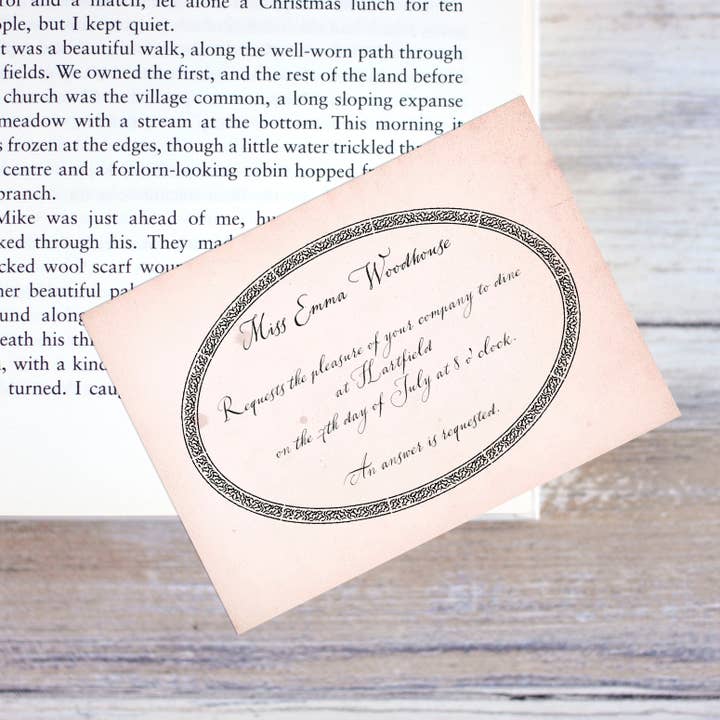 and a match, let alone a Christmas lunch for ten
but I kept quiet.
was a beautiful walk, along the well-worn path through
fields. We owned the first, and the rest of the land before
church was the village common, a long sloping expanse
meadow with a stream at the bottom. This morning it
frozen at the edges, though a little water trickled
centre and a forlorn-looking robin hopped
branch.
Mike was just ahead of me,
through his. They
wool scarf
beautiful
his
with a
turned. I
Miss Emma Woodhouse
Requests the pleasure of your company to dine
at Hartfield
on the 7th day of July at 8 o'clock.
An answer is requested.